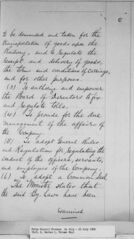 to be demanded and taken for the
transportation of goods upon the
Railway and to regulate the
receipt and delivery of goods,
the terms and conditions of carriage,
and for other purposes.
to authorize and empower
the Board of Directors to fix
and regulate tolls.
to provide for the due
management of the affairs of
the Company.
to adopt General Rules
and Regulations for regulating the
conduct of the officers, servants,
and employees of the Company.
to adopt a Common Seal.
The Minister states that
the said By Laws have been